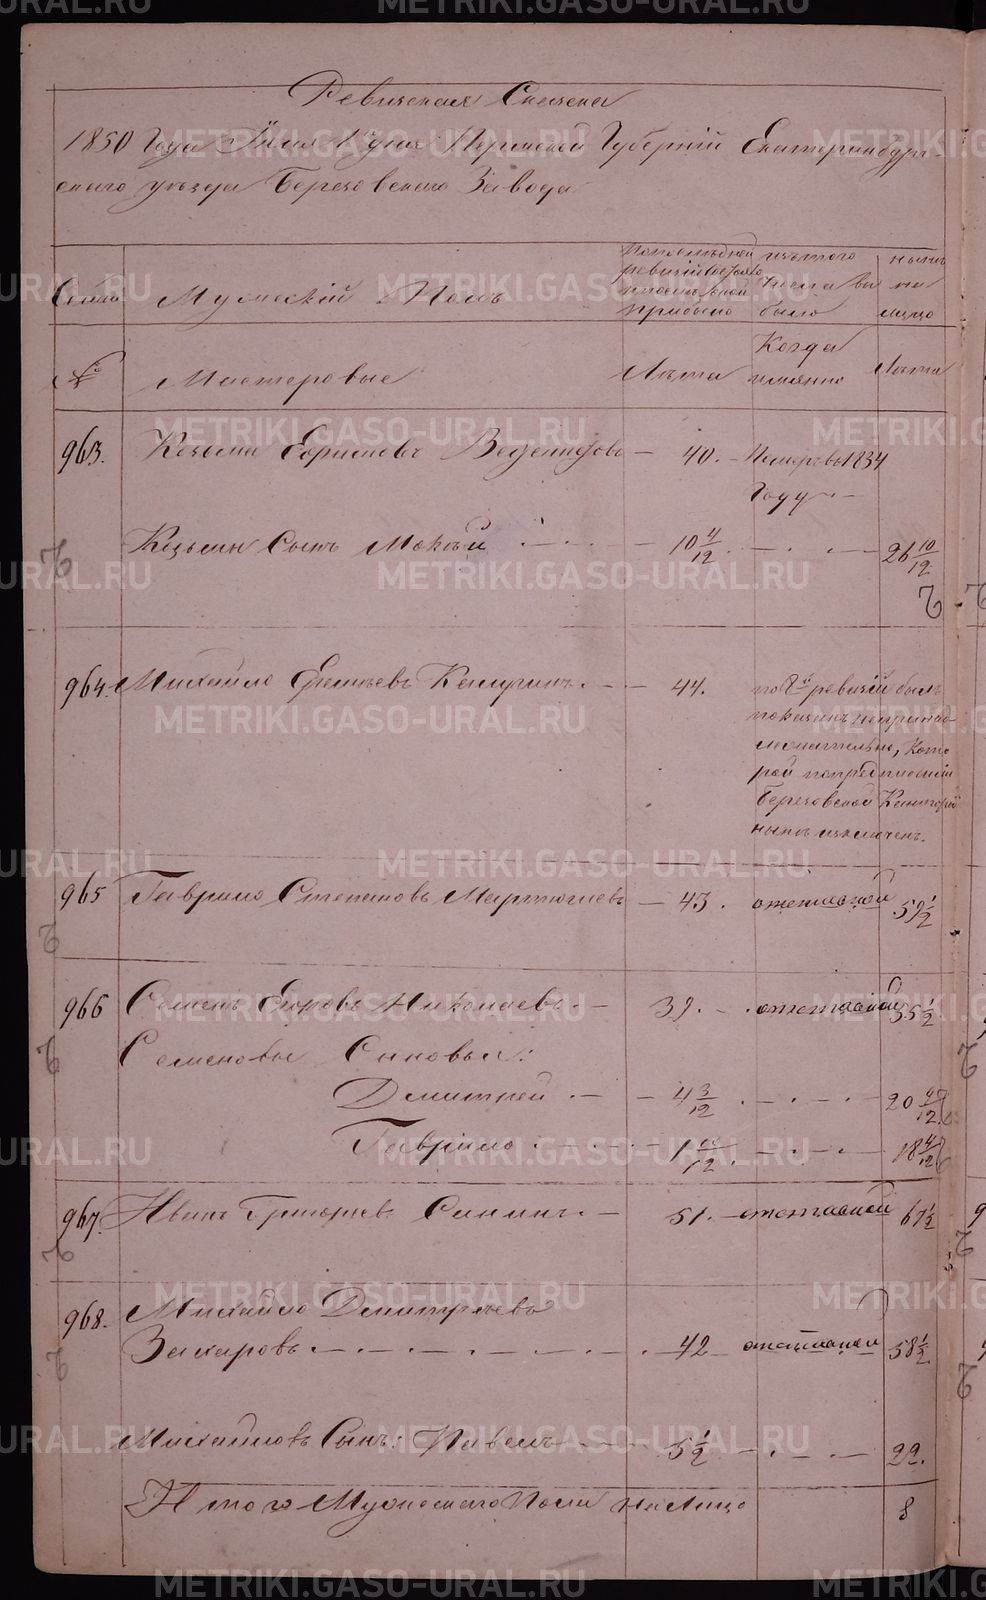 Ревизская Сказка
1850 Года Июля 1 дня Пермской Губерніи Екатеринбург-
скаго уезда Березовскаго Завода
Семьи
Мужескій Полъ
По последней ревизіи состояло и после оной прибыло
изъ того числа выбыло
ныне на лицо
№
Мастеровые
Лета
Когда имянно
Лета
963. Козьма Ефимовъ — 40. — Померъ въ 1834
Году —
Козьмы Сынъ Мокей — 10 4/12 — 26 10/12
964. Михайло — 44. по 8й ревизіи былъ
показанъ непринад-
лежательно, Кото-
рой по предписанію
Березовской Канторы
ныне изключенъ.
965 Гаврило Степановъ Мартюшевъ — 43. отставной 59 1/2
966 Семенъ Егоровъ Николаевъ — 39. — отставной 55 1/2
Семеновы Сыновья:
Дмитрей — 4 3/12 — 20 9/12
Гаврило — 1 10/12 — 18 4/12
967. Иванъ Григорьевъ Сининъ — 51. — отставной 67 1/2
968. Михайло Дмитріевъ
Захаровъ — 42 — отставной 58 1/2
Михайловъ Сынъ: Павелъ — 5 1/2 — 22.
Итого Мужескаго Пола на Лицо 8
METRIKI.GASO-URAL.RU